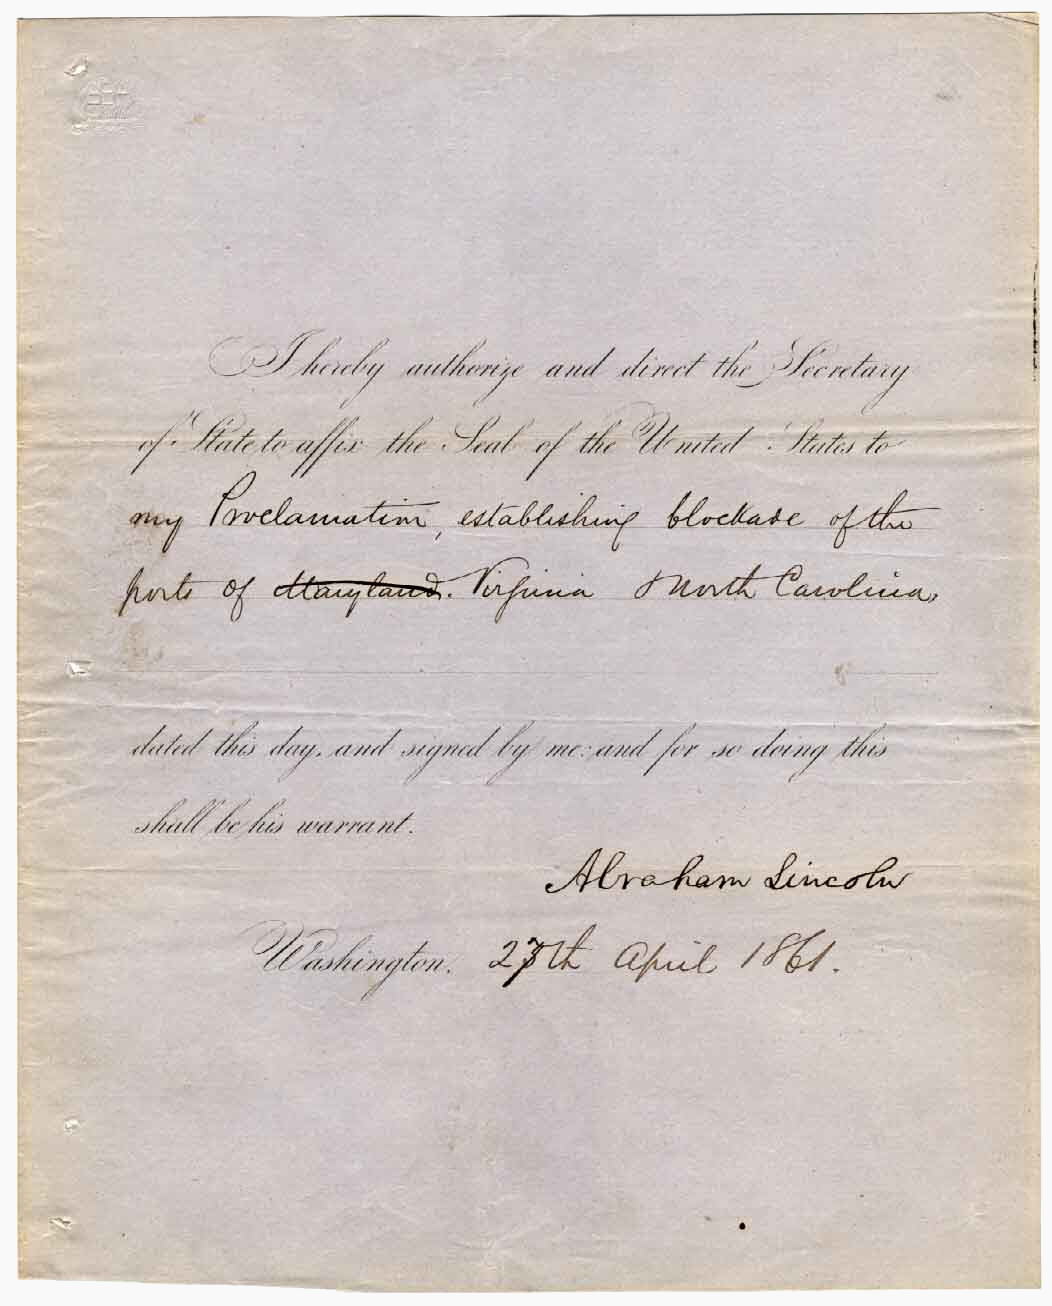 I hereby authorize and direct the Secretary
of State to affix the Seal of the United States to
my Proclamation, establishing blockade of the
ports of Maryland. Virginia & North Carolina,
dated this day, and signed by me: and for so doing this
shall be his warrant.
Abraham Lincoln
Washington, 27th April 1861.